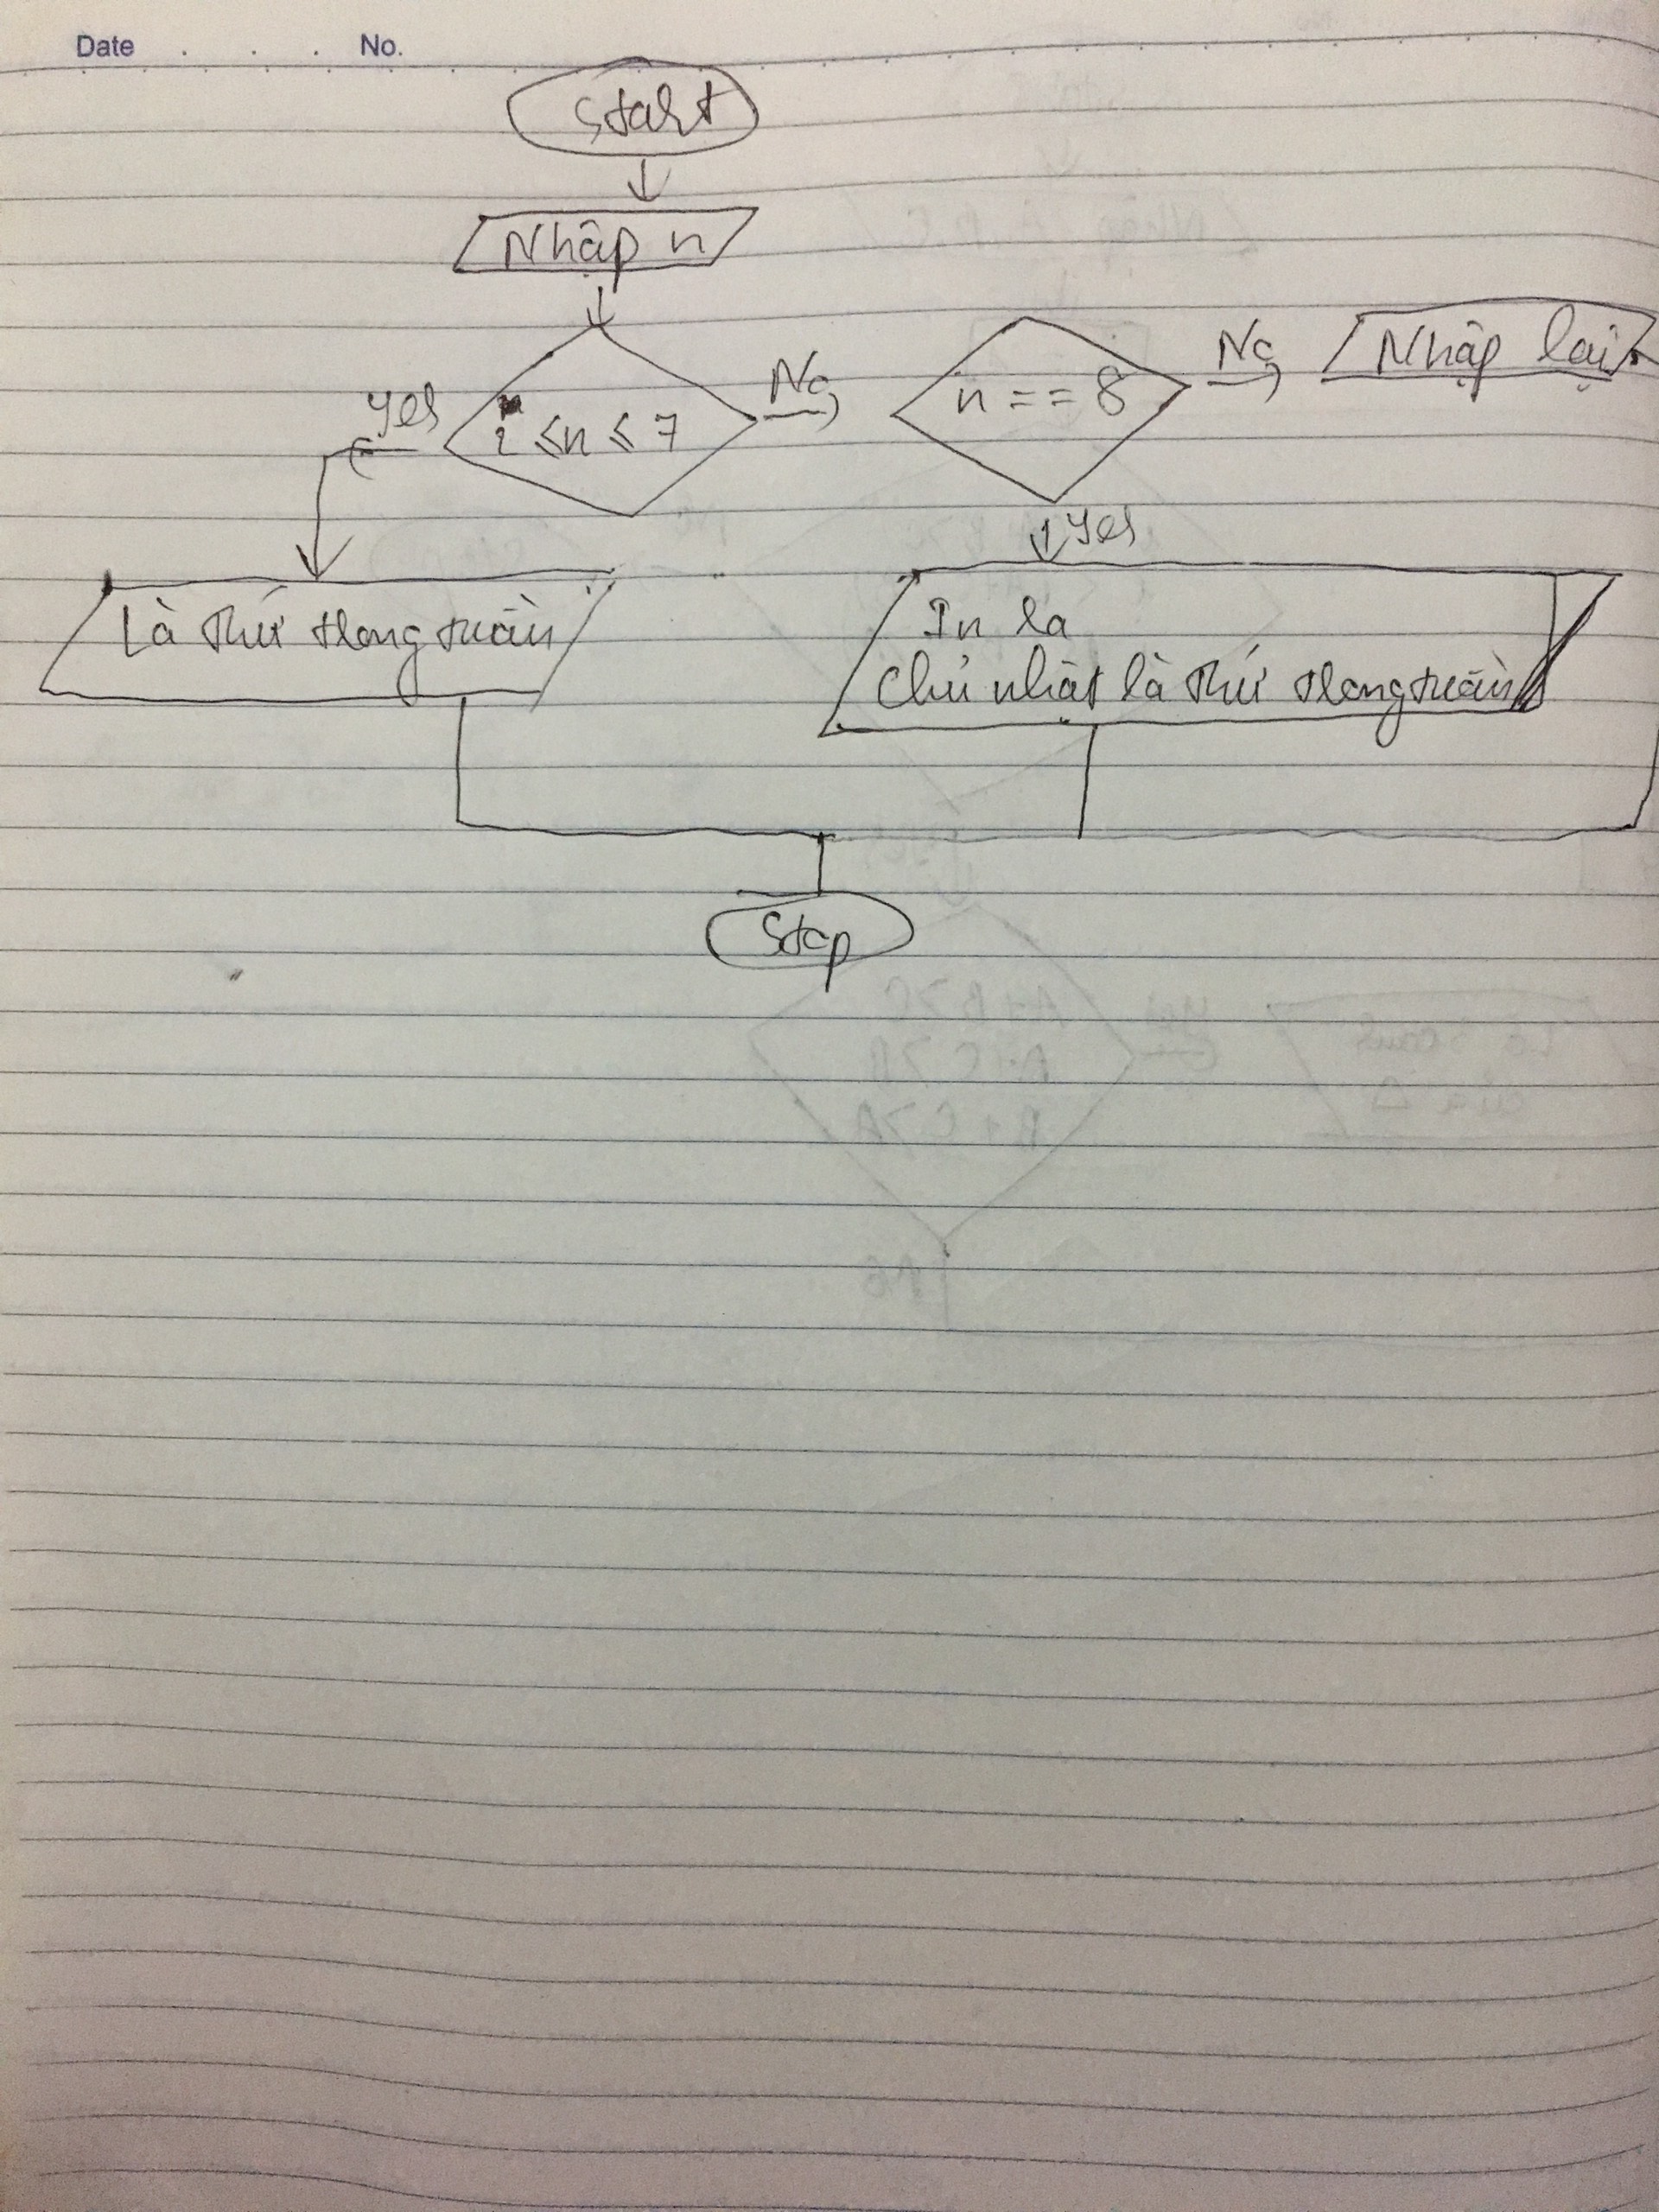 Date No.
Start
Nhập n
Yes
2 ≤ n ≤ 7
No
n == 8
No
Nhập lại
Yes
Là thứ trong tuần
In ra
Chủ nhật là thứ trong tuần
Stop